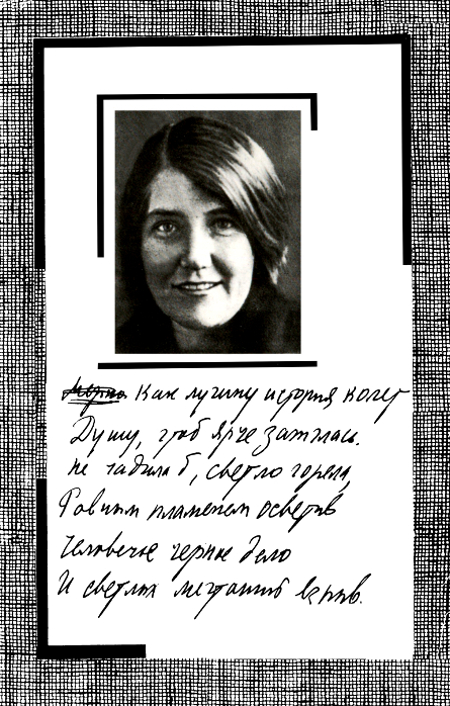 Как лучину история колет
Душу, чтоб ярче зажглась.
Не чадила б, светло горела,
Ровным пламенем осветив
Человечье черное дело
И светлых мечтаний